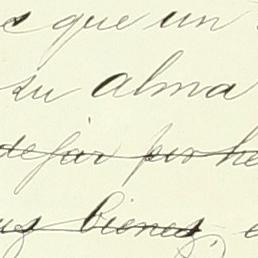 que un
su alma
dejar por he
bienes, e